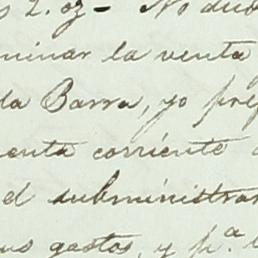 s 2. oz - No dud
minar la venta
da Barra, yo pref
enta corriente
d subministrar
us gastos, y p.ª l